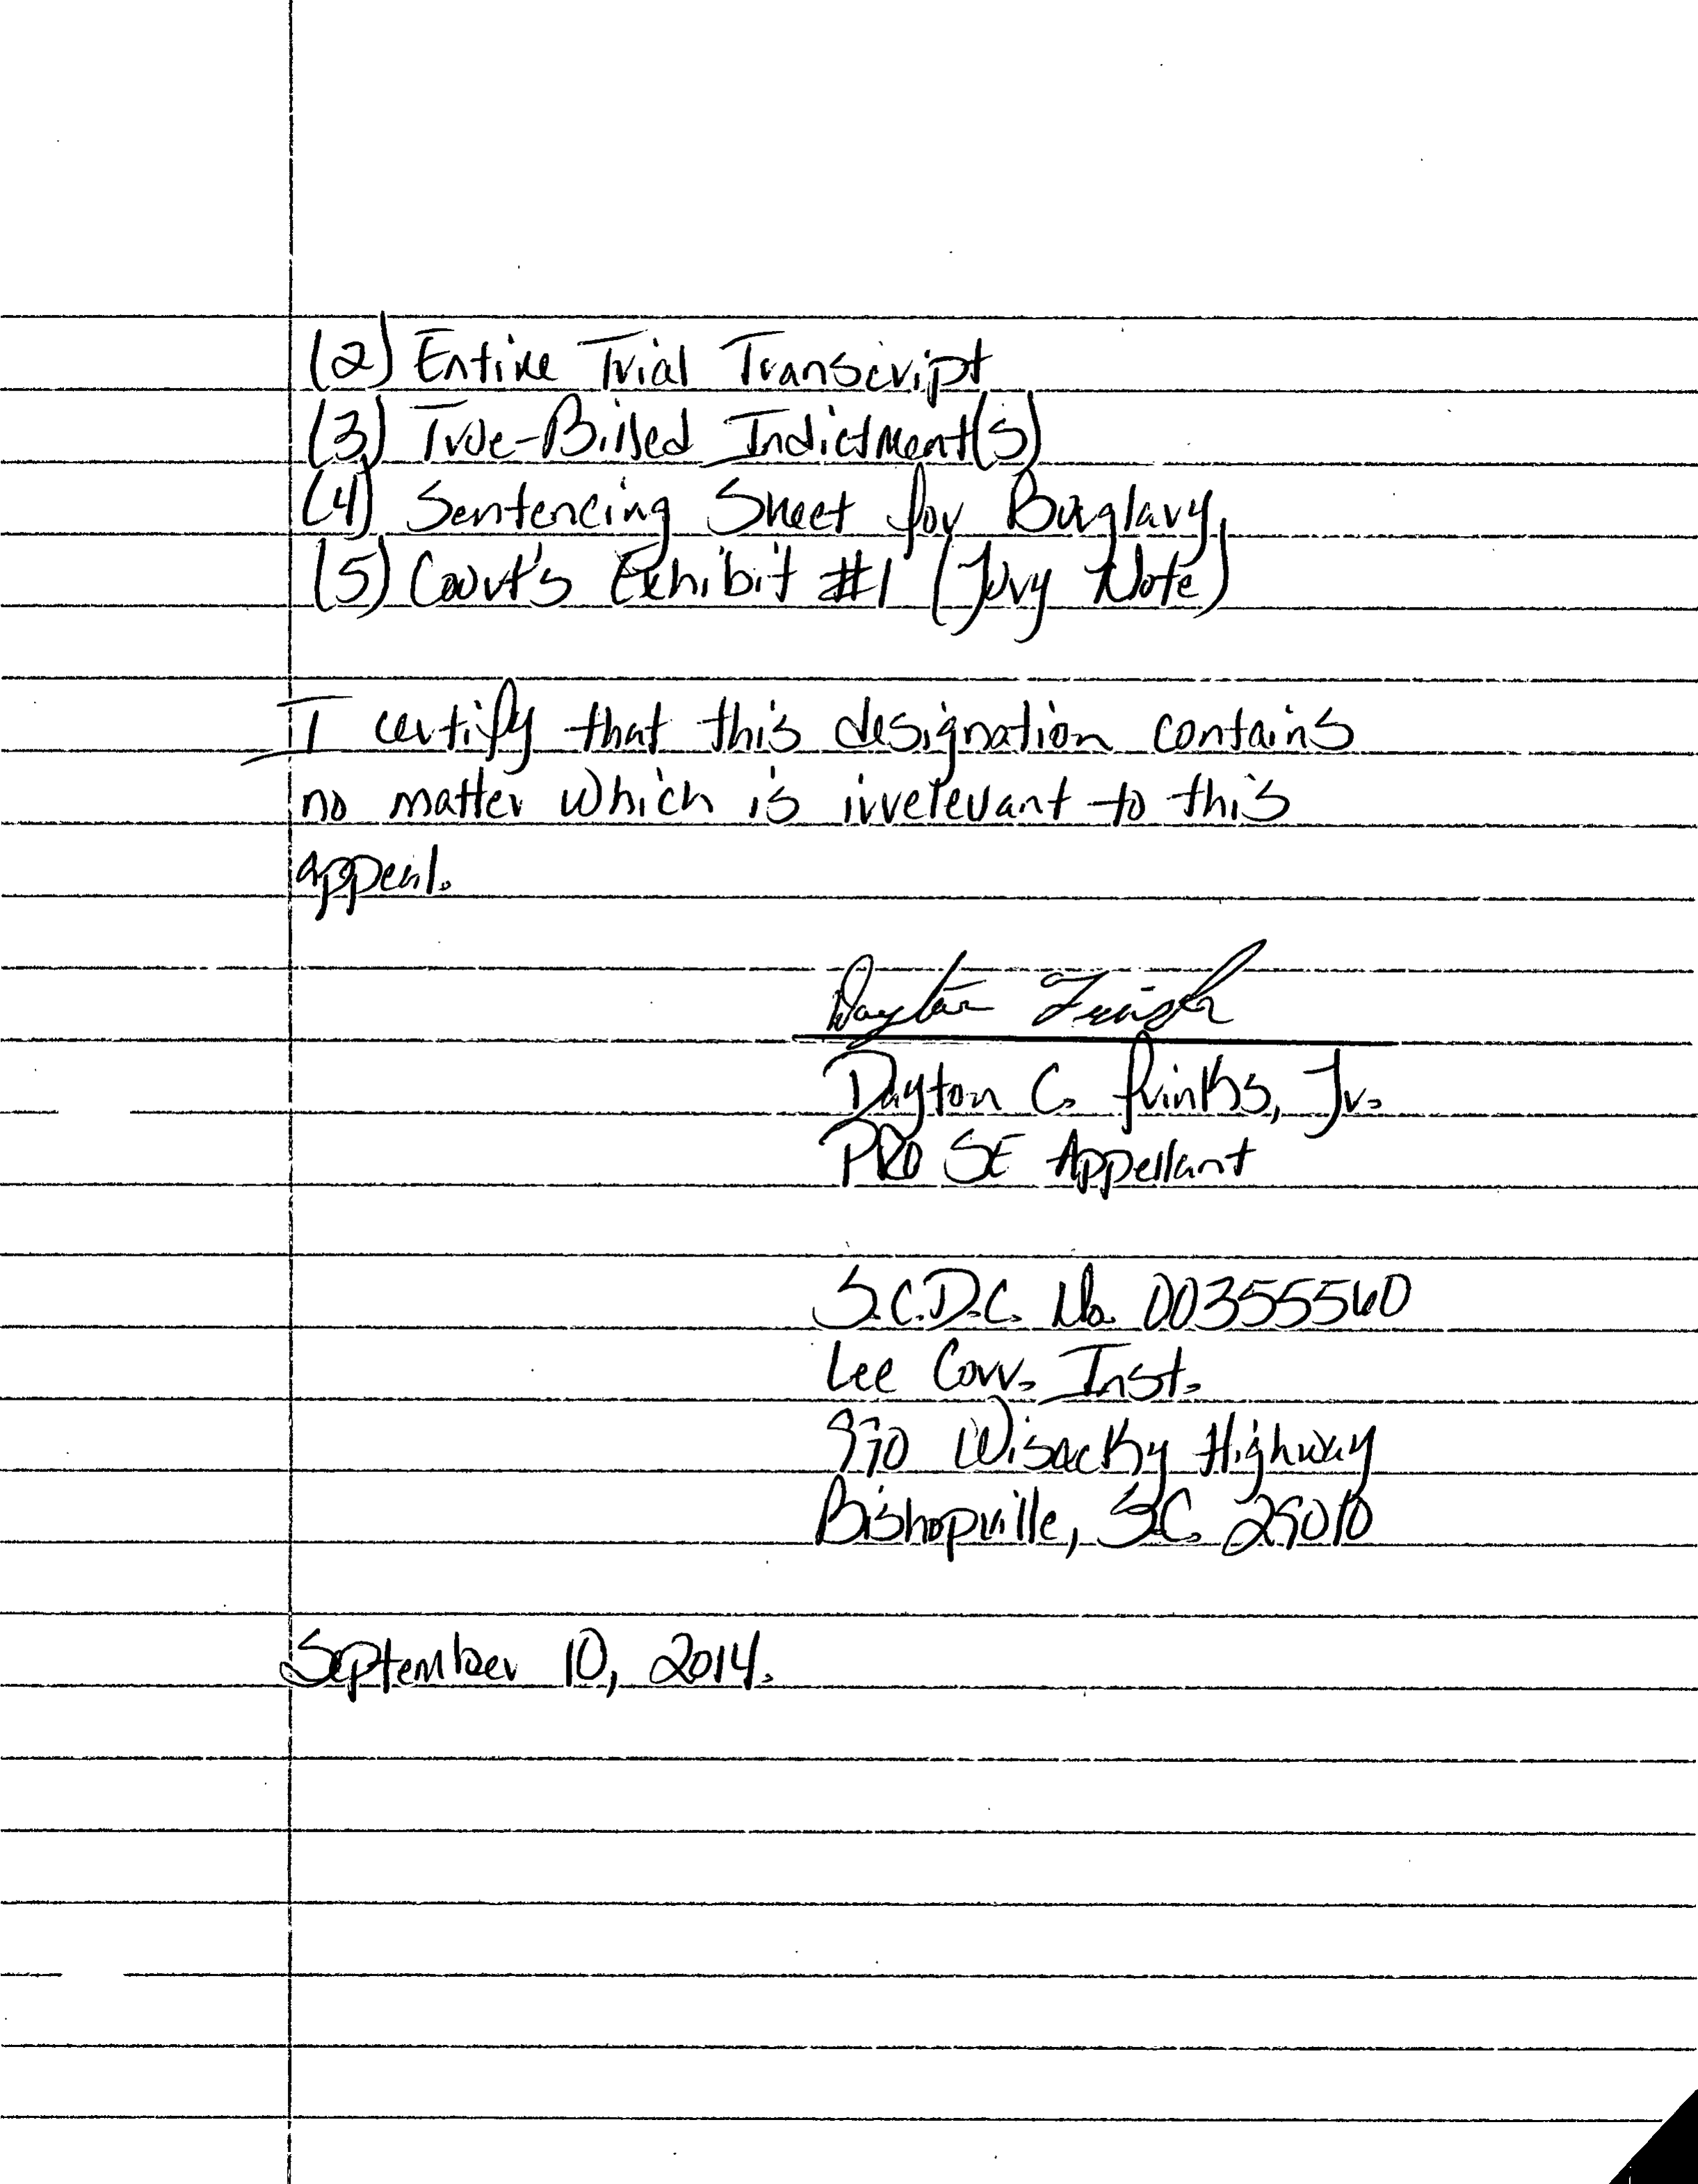 (2) Entire Trial Transcript
(3) True-Billed Indictment(s)
(4) Sentencing Sheet for Burglary
(5) Court's Exhibit #1 (Jury Note)
I certify that this designation contains
no matter which is irrelevant to this
appeal.
Dayton
Dayton C. Prinks, Jr.
PRO SE Appellant
S.C.D.C. No. 00355560
Lee Corr. Inst.
990 Wisacky Highway
Bishopville, S.C. 29010
September 10, 2014.